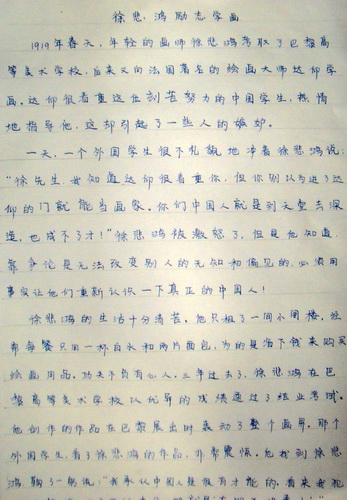 徐悲鸿励志学画
1919年春天，年轻的画师徐悲鸿考取了巴黎高
等美术学校，后来又向法国著名的绘画大师达仰学
画。达仰很看重这位刻苦努力的中国学生，热情
地指导他，这却引起了一些人的嫉妒。
一天，一个外国学生很不礼貌地冲着徐悲鸿说：
“徐先生，我知道达仰很看重你，但你别以为进了达
仰的门就能当画家。你们中国人就是到天堂去深
造，也成不了才！”徐悲鸿被激怒了，但是他知道，
靠争论是无法改变别人的无知和偏见的，必须用
事实让他们重新认识一下真正的中国人！
徐悲鸿的生活十分清苦。他只租了一间小阁楼，经
常每餐只用一杯白水和两片面包，为的是省下钱来购买
绘画用品。功夫不负有心人，三年过去了，徐悲鸿在巴
黎高等美术学校以优异的成绩通过了结业考试。
他创作的作品在巴黎展出时轰动了整个画界。那个
外国学生，看了徐悲鸿的作品，非常震惊。他找到徐悲
鸿鞠了一躬说：“我承认中国人是很有才能的。看来我犯